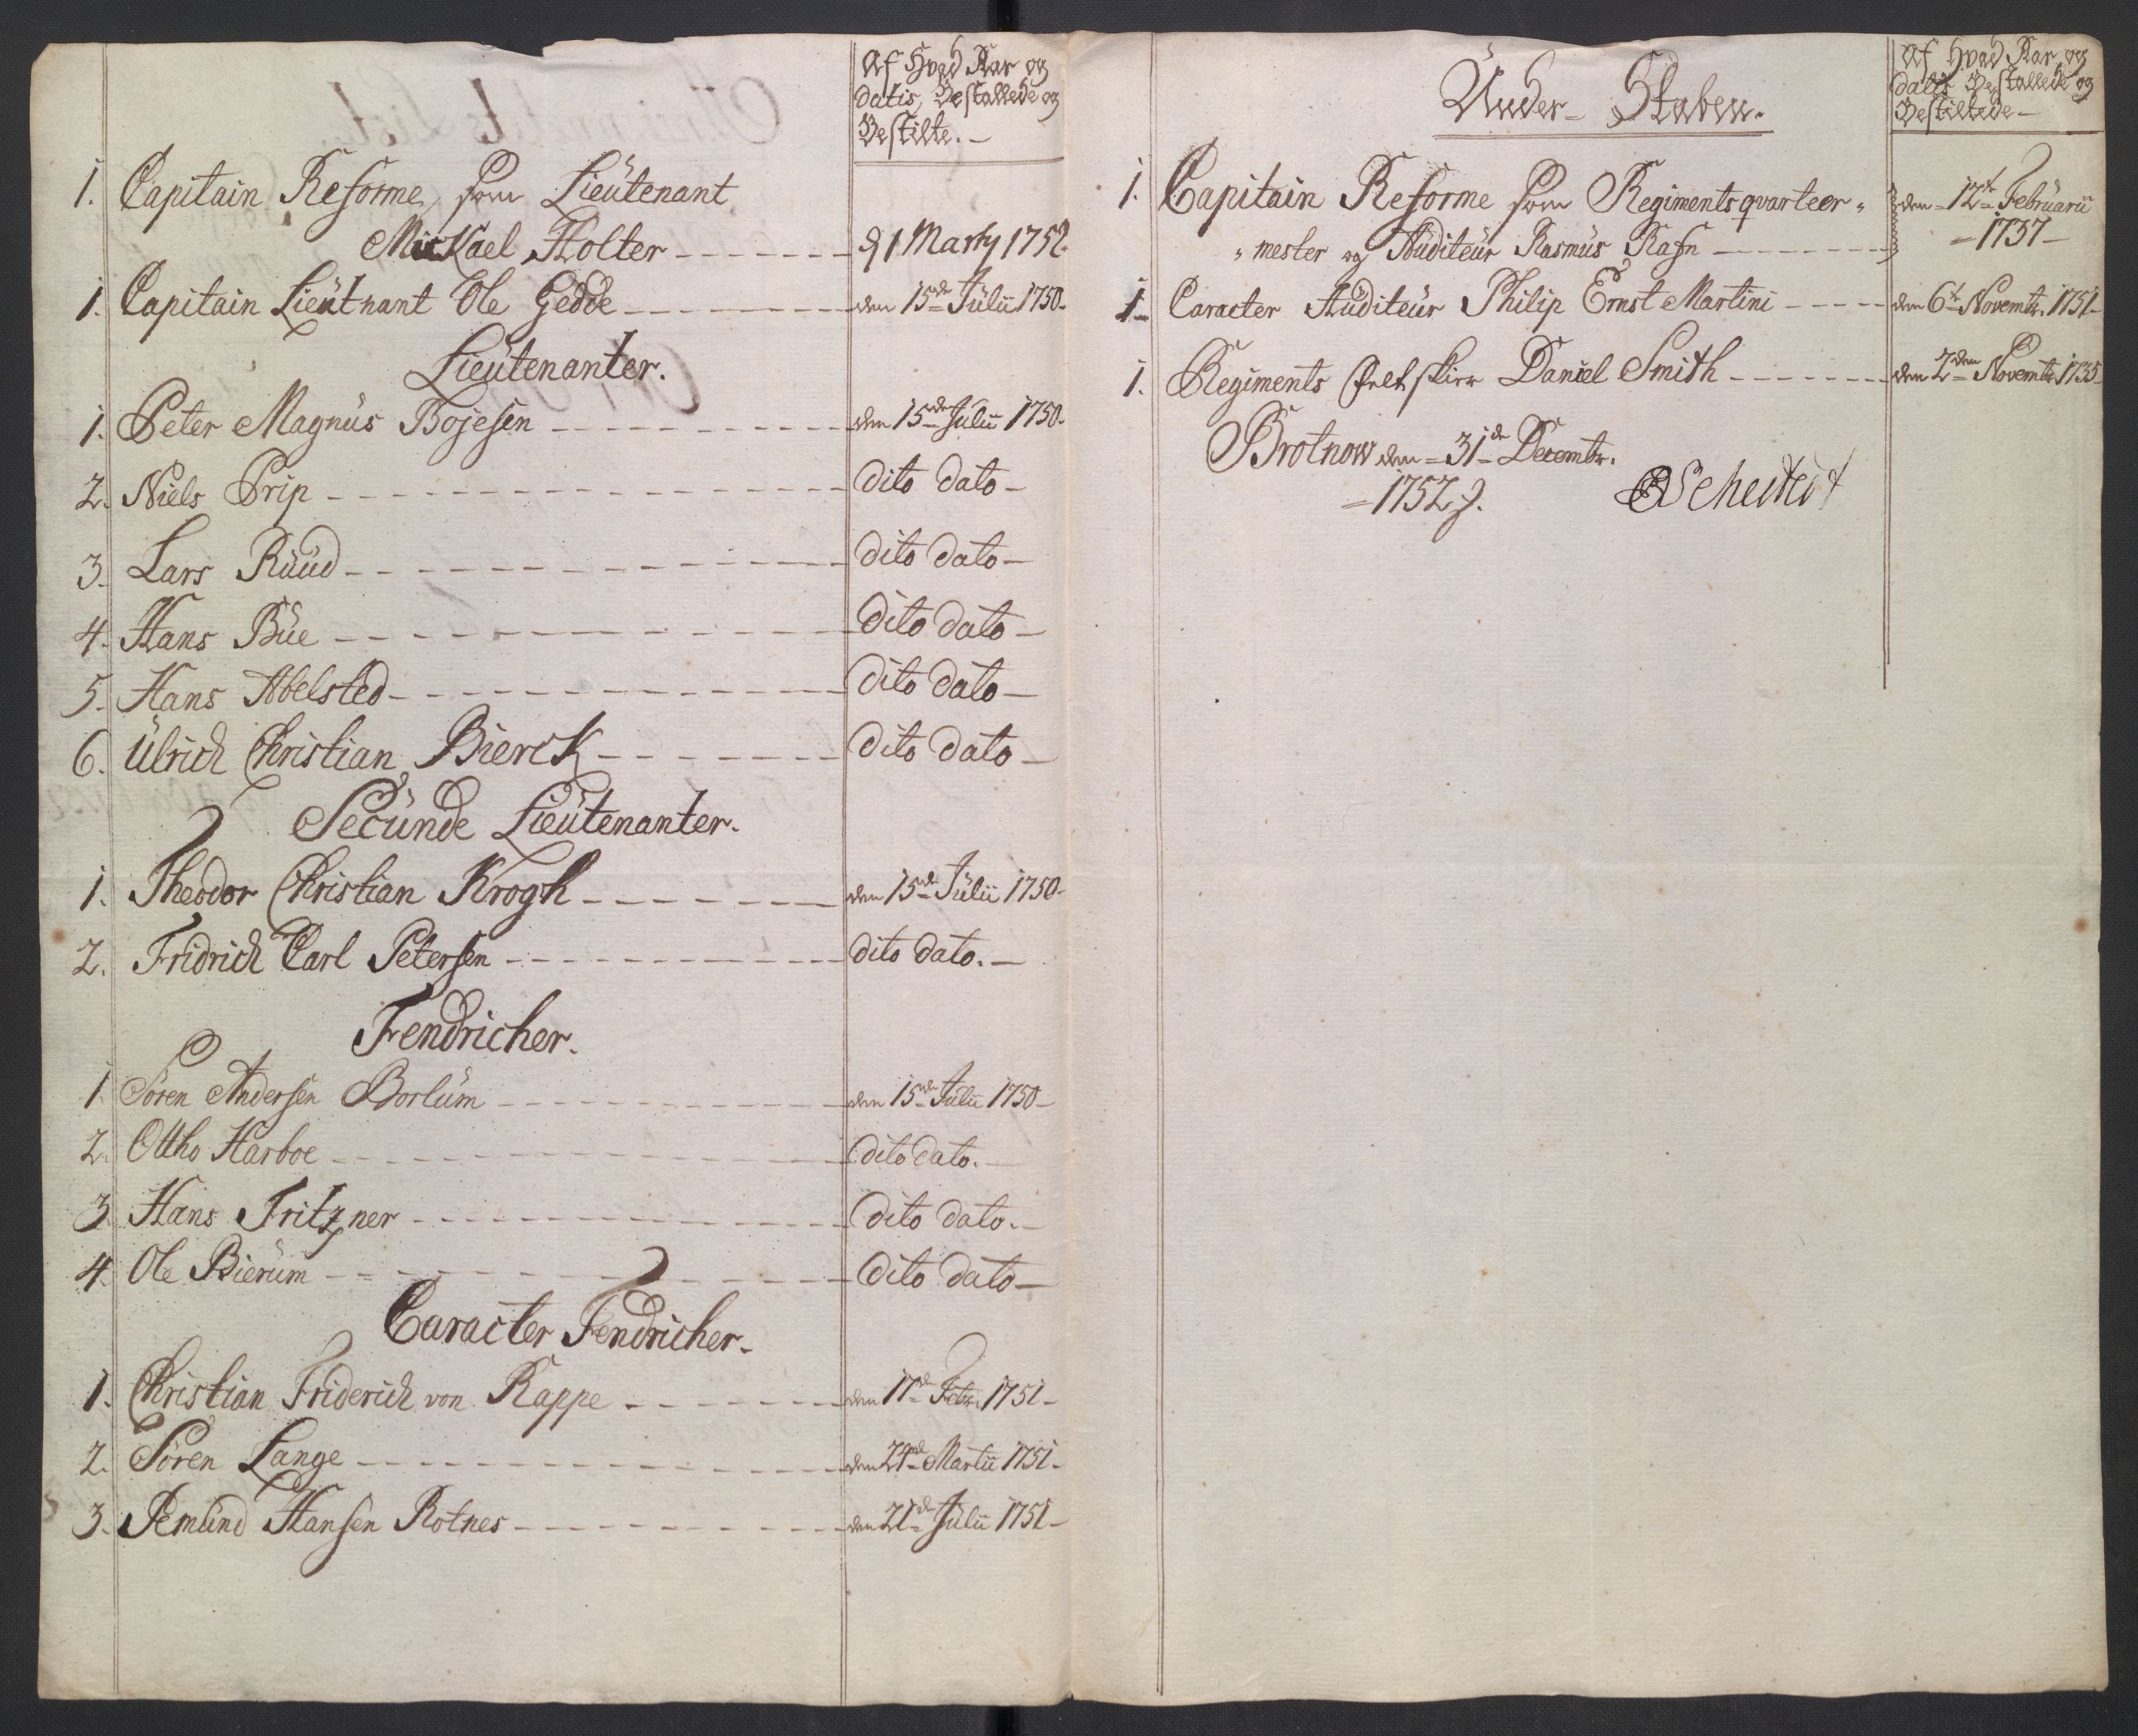 Af Hvad Aar og
datis, Bestallede og
Bestilte.
1. Capitain Reforme som Lieütenant
Mickael Holter d 1 Marty 1752.
1. Capitain Lieütnant Ole Gedde den 15de Julii 1750.
Lieütenanter.
1. Peter Magnüs Bojesen den 15de Julii 1750.
2. Niels Prip dito dato
3. Lars Rüüd dito dato
4. Hans Büe dito dato
5. Hans Abelsted dito dato
6. Ülrich Christian Bierck dito dato
Secünde Lieütenanter.
1. Theodor Christian Krogh den 15de Jülii 1750
2. Fridrich Carl Petersen dito dato.
Fendricher.
1. Sören Andersen Borlüm den 15de Julii 1750
2. Ottho Harboe dito dato.
3. Hans Fritzner dito dato.
4. Ole Bierüm dito dato
Caracter Fendricher.
1. Christian Friderich von Kappe den 17de Febr. 1751
2. Sören Lange den 24de Martii 1751.
3. Aemünd Hansen Rotnes den 21de Jülii 1751
Ünder-Staben.
Af Hvad Aar og
datis Bestallede og
Bestiltede
1. Capitain Reforme som Regimentsqvarteer„ den 12te Februarii
„mester og Aüditeür Rasmüs Rafn 1737
1. Caracter Aüditeür Philip Ernst Martini den 6te Novembr. 1751
1. Regiments Feltskier Daniel Smith den 2den Novembr. 1735
Brotnow den 31de Decembr.
1752.